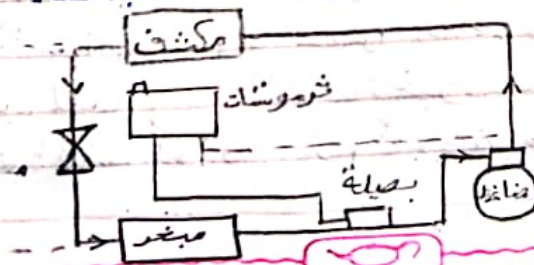 مكثف
ثرموستات
بصيلة
ضاغط
مبخر